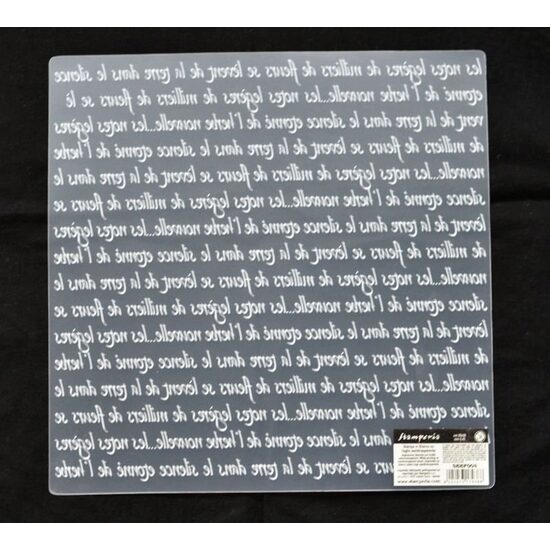 les notes legères de milliers de fleurs se lèvent de la terre dans le silence
etonné de l'herbe nouvelle...les notes legères de milliers de fleurs se lè
vent de la terre dans le silence etonné de l'herbe nouvelle...les notes legères
de milliers de fleurs se lèvent de la terre dans le silence etonné de l'herbe nou
velle...les notes legères de milliers de fleurs se lèvent de la terre dans le
silence etonné de l'herbe nouvelle...les notes legères de milliers de fleurs se
lèvent de la terre dans le silence etonné de l'herbe nouvelle...les notes legères
de milliers de fleurs se lèvent de la terre dans le silence etonné de l'herbe
nouvelle...les notes legères de milliers de fleurs se lèvent de la terre dans le
silence etonné de l'herbe nouvelle...les notes legères de milliers de fleurs se
lèvent de la terre dans le silence etonné de l'herbe nouvelle...les notes legères
de milliers de fleurs se lèvent de la terre dans le silence etonné de l'herbe
nouvelle...les notes legères de milliers de fleurs se lèvent de la terre dans le
silence etonné de l'herbe nouvelle...les notes legères de milliers de fleurs se
lèvent de la terre dans le silence etonné de l'herbe nouvelle...les notes legères
de milliers de fleurs se lèvent de la terre dans le silence etonné de l'herbe
Stamperia
www.stamperia.com